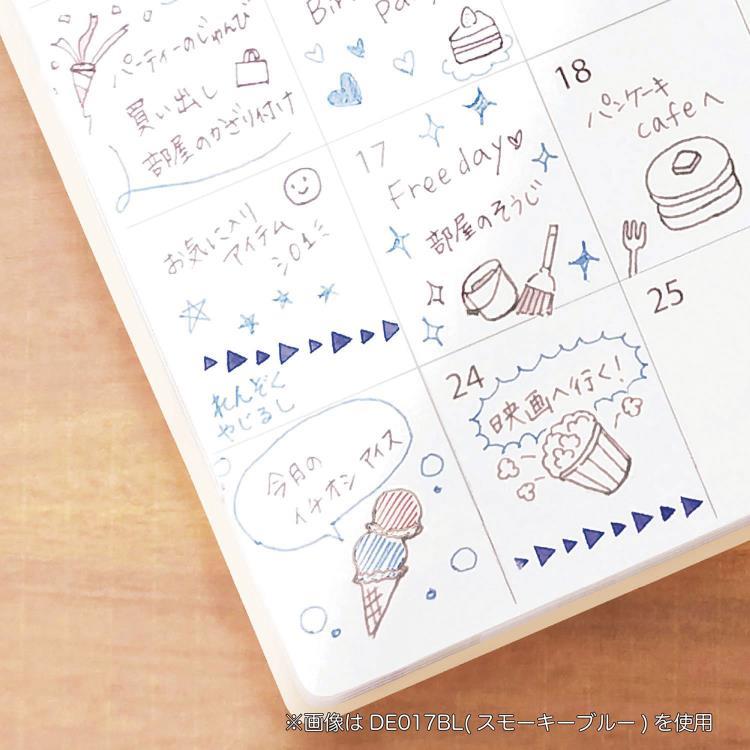 パーティーのじゅんび
買い出し
部屋のかざり付け
お気に入り
アイテム
17
Free day♡
部屋のそうじ
18
パンケーキ
cafeへ
れんぞく
やじるし
今月の
イチオシ アイス
24
映画へ行く!
25
※画像は DE017BL( スモーキーブルー ) を使用